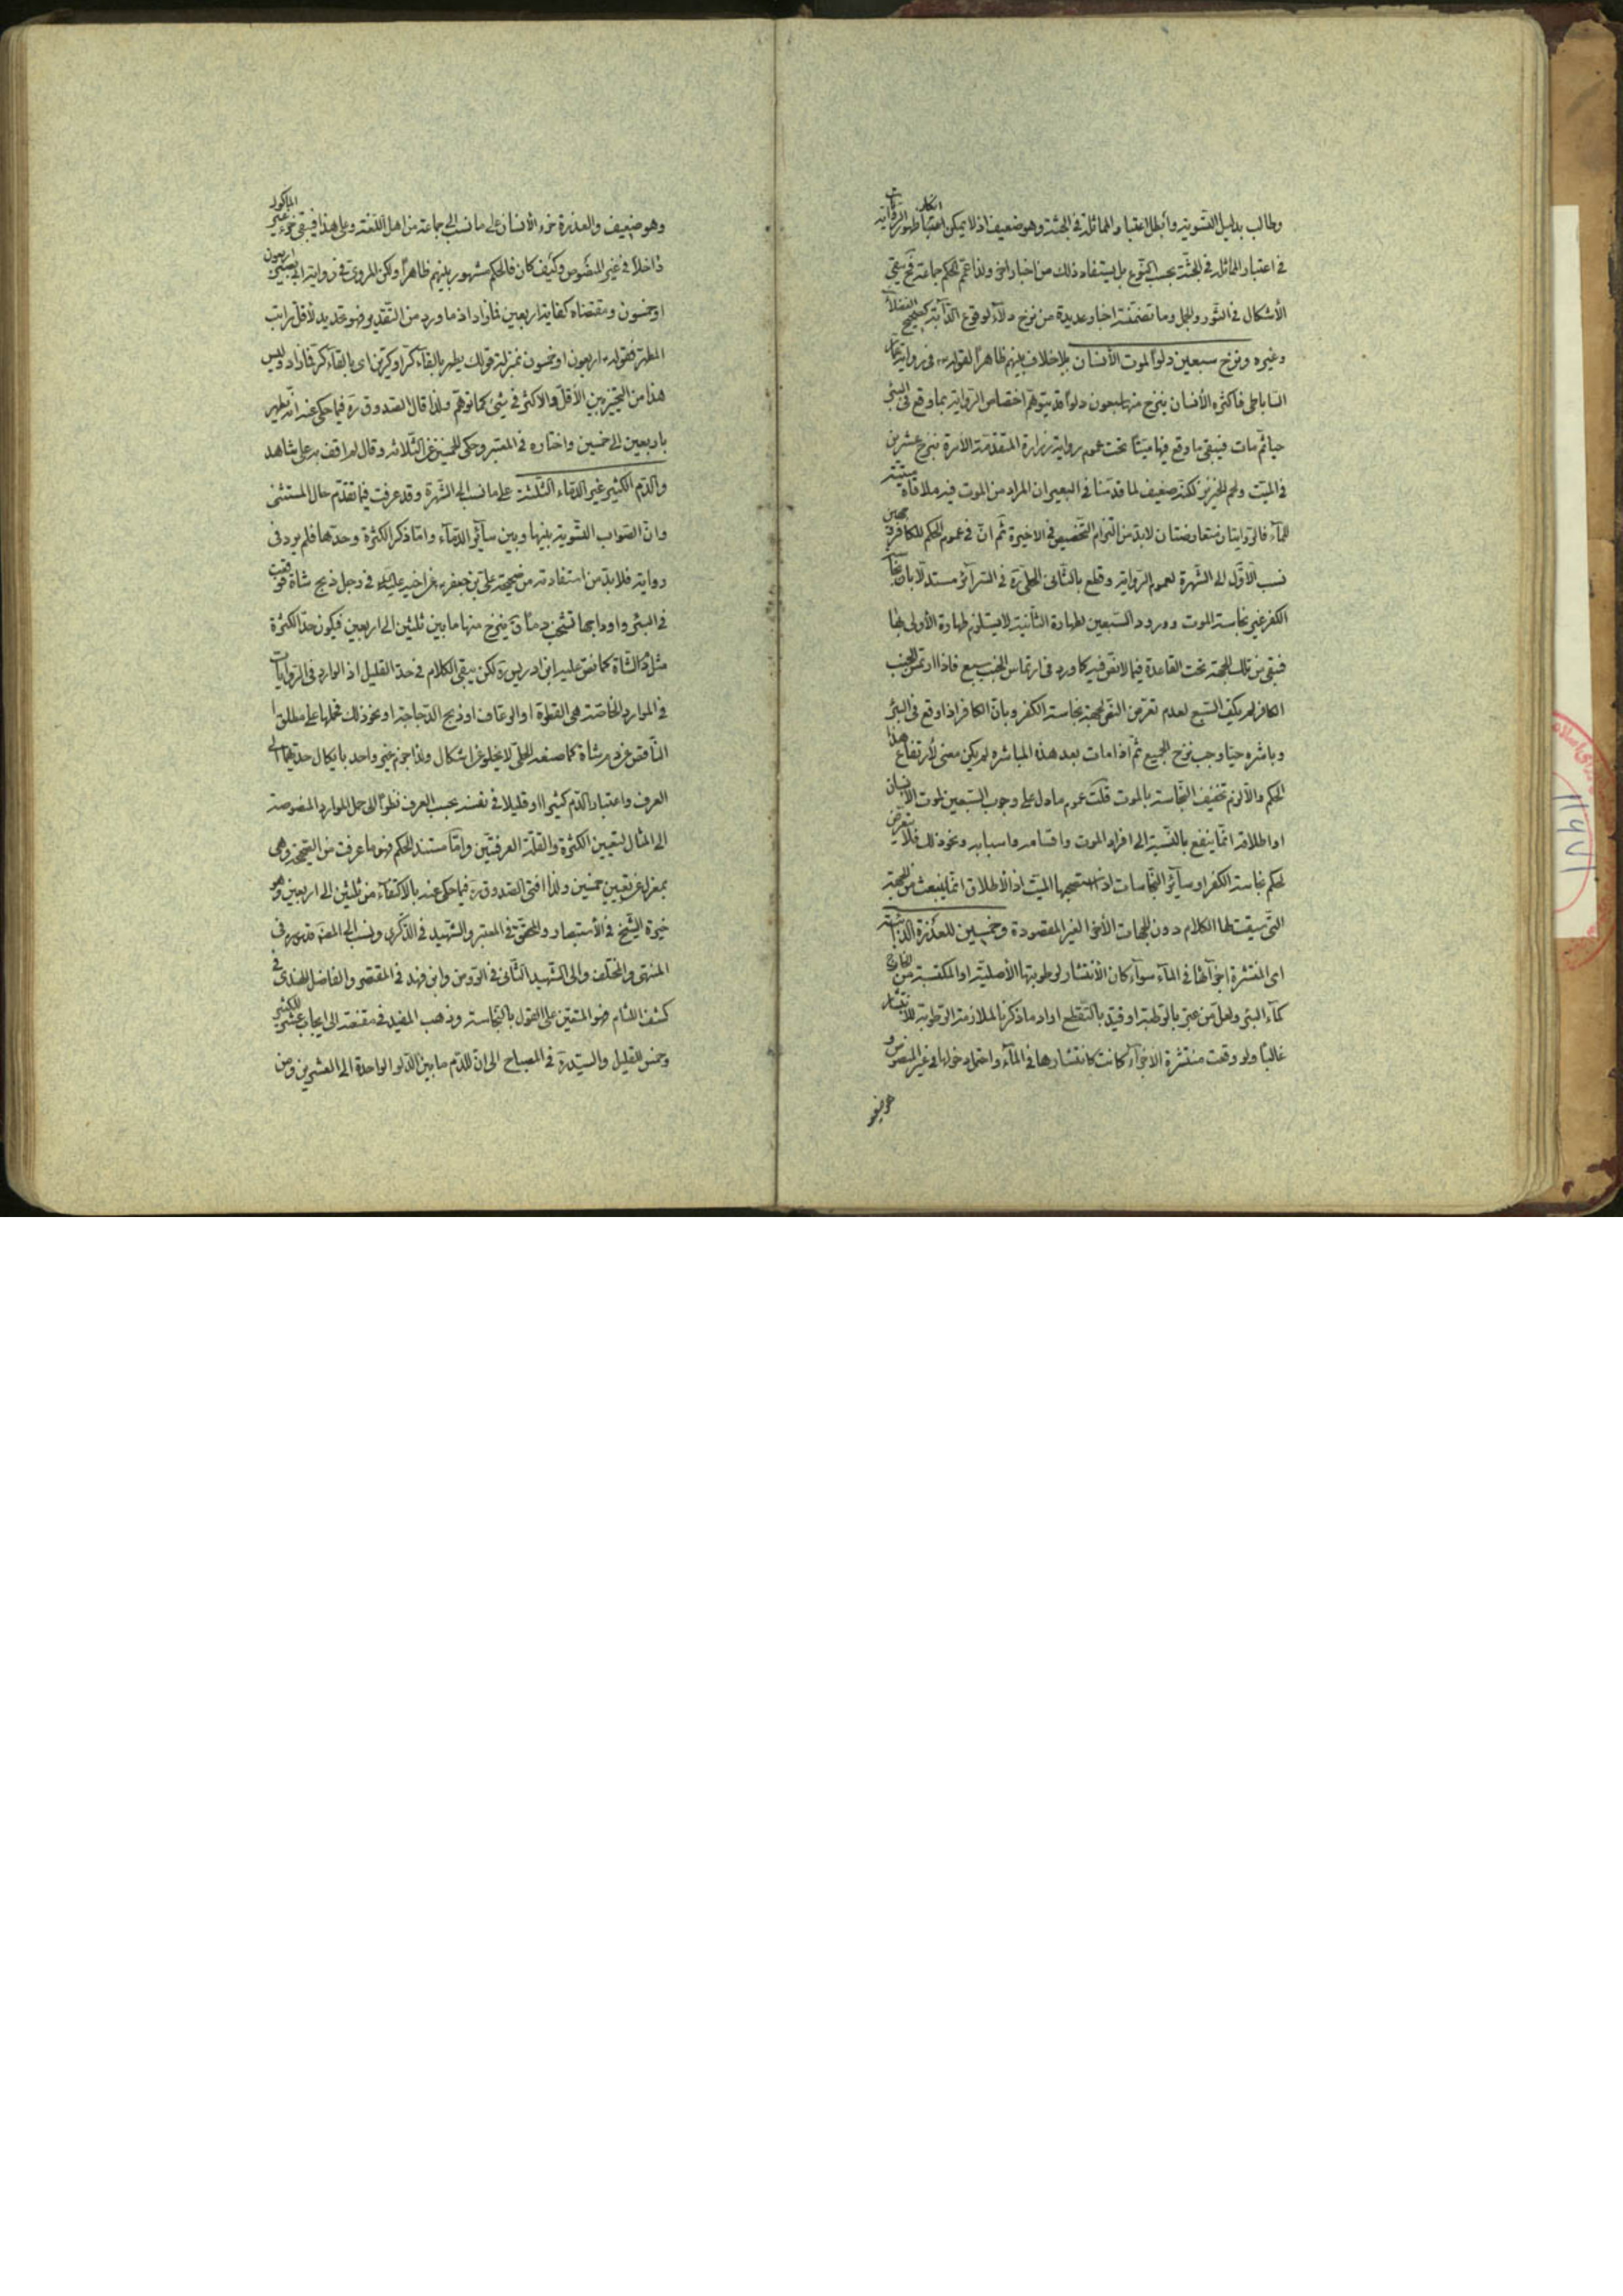 وطالب بدليل التسوية وأبطل اعتبار المماثلة في الجثة وهو ضعيف اذ لا يمكن انكار ظهور الروايات
في اعتبار المماثلة في الجثة بحسب النوع بل يستفاد ذلك من اخبار اخر ولذا عمّم الحكم جماعة فح يبقى
الأشكال في الثور والجمل وما تضمنته اخبار عديدة من نزح دلاء لوقوع الدابّة كصحيح الفضلاء
وغيره ونزح سبعين دلوًا لموت الأنسان بلا خلاف بينهم ظاهرًا لقوله في رواية عمار
الساباطي فاكثره الأنسان ينزح منها سبعون دلوًا قد يتوهّم اختصاص الرواية بما وقع في البئر
حيا ثم مات فيبقى ما وقع فيها ميتًا تحت عموم رواية زرارة المتقدمة الآمرة بنزح عشرين
في الميّت ولحم الخنزير لكنه ضعيف لما قدمنا في البعير ان المراد من الموت فيه ملاقاة ميتته
للماء فالروايتان متعارضتان لا بد من التزام التخصيص في الاخيرة ثم انّ في عموم الحكم للكافر وجهين
نسب الأوّل الى الشهرة لعموم الرواية وقطع بالثاني الحلي ره في السرائر مستدلا بان نجاسة
الكفر غير نجاسة الموت وورود السبعين لطهارة الثانية لا يستلزم طهارة الأولى بها
فبقى من تلك الجهة تحت القاعدة فيما لا نصّ فيه كما ورد في ارتماس الجنب سبع فاذا ارتمس الجنب
الكافر لم يكف السبع لعدم تعرض النص لجهة نجاسة الكفر وبانّ الكافر اذا وقع في البئر
وباشره حيا وجب نزح الجميع ثمّ اذا مات بعد هذه المباشرة لم يكن معنى لأرتفاع هذا
الحكم والّا لزم تخفيف النجاسة بالموت قلت عموم ما دل على وجوب السبعين لموت الأنسان
او اطلاقه انما ينفع بالنسبة الى افراد الموت واقسامه واسبابه ونحو ذلك فلا يتعرض
لحكم نجاسة الكفر او سائر النجاسات اذا استصحبها الميت اذ الأطلاق انما ينبعث من الجهة
التي سيقت لها الكلام دون الجهات الأخر الغير المقصودة وخمسين للعذرة الذائبة
اى المنتشرة اجزائها في الماء سواء كان الأنتشار لرطوبتها الأصلية او المكتسبة من الخارج
كماء البئر ولعل من عبّر بالرطبة او قيّد بالتقطع اراد ما ذكرنا لملازمة الرطوبة للأنتشار
غالبًا ولو وقعت منتشرة الاجزاء كانت كانتشارها في الماء واحتمل دخولها في غير المنصوص
وهو ضعيف
وهو ضعيف والعذرة خرء الأنسان على ما نسب الى جماعة من اهل اللغة وعلى هذا فيبقى خرء غير المأكول
داخلًا في غير المنصوص وكيف كان فالحكم مشهور بينهم ظاهرًا ولكن المروى في رواية ابى بصير اربعون
او خمسون ومقتضاه كفاية اربعين فانّ او اذ ما ورد من التقدير فهو تحديد لأقلّ مراتب
المطهر فقوله اربعون او خمسون بمنزلة قولك يطهر بالقاء كرّ او كرين اى بالقاء كر فما زاد وليس
هذا من التخيير بين الأقلّ والأكثر في شئ كما توهّم ولذا قال الصدوق ره فيما حكى عنه انّه يطهر
باربعين الى خمسين واختاره في المعتبر وحكى الخمسين عن الثلاثة وقال لم اقف به على شاهد
والدّم الكثير غير الدماء الثلثة على ما نسب الى الشهرة وقد عرفت فيما تقدم حال المستثنى
وانّ الصواب التسوية بينها وبين سائر الدماء وامّا ذكر الكثرة وحدّها فلم يرد في
رواية فلا بدّ من استفادته من صحيحة علي بن جعفر عن اخيه عليه السلم في رجل ذبح شاة فوقعت
في البئر واوداجها تشخب دمًا قَ ينزح منها ما بين ثلثين الى اربعين فيكون حدّ الكثرة
مثل دم الشاة كما نصّ عليه ابن ادريس ره لكن يبقى الكلام في حدّ القليل اذ الوارد في الروايات
في الموارد الخاصّة هى القطرة او الرعاف او ذبح الدجاجة او نحو ذلك فحملها على مطلق
الناقص عن دم شاة كما صنعه الحلي لا يخلو عن اشكال ولذا جزم غير واحد بايكال حدّيهما الى
العرف واعتبار الدّم كثيرا او قليلا في نفسه بحسب العرف نظرًا الى حمل الموارد المنصوصة
الى المثال لتعيين الكثرة والقلّة العرفيّتين وامّا مستند الحكم فهو ما عرفت من الصحيحة وهى
بمعزل عن تعيين خمسين ولذا افتى الصدوق ره فيما حكى عنه بالاكتفاء من ثلثين الى اربعين وهو
خيرة الشيخ في الأستبصار والمحقق في المعتبر والشهيد في الذكرى ونسب الى المصنف قدس سره في
المنتهى والمختلف والى الشهيد الثاني في الروض وابن فهد في المقتصر والفاضل الهندى في
كشف اللثام فهو المتعين على القول بالنجاسة وذهب المفيد في مقنعته الى ايجاب عشر للكثير
وخمس للقليل والسيد ره في المصباح الى انّ للدّم ما بين الدّلو الواحدة الى العشرين ومن